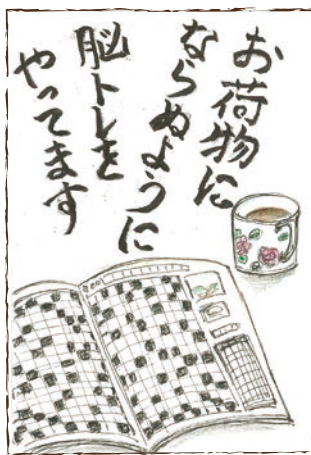 お荷物に
ならぬように
脳トレを
やってます